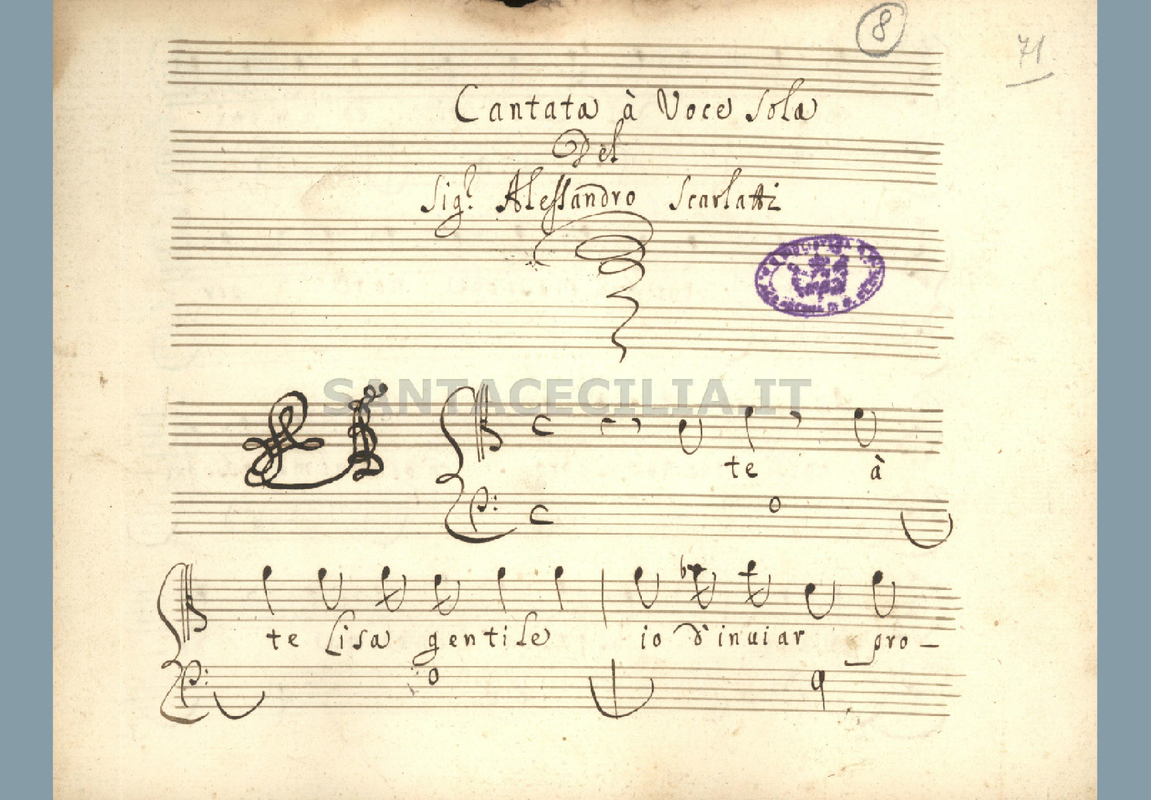 8
71
Cantata à Voce sola
Del
Sig.r Alessandro Scarlatti
SANTACECILIA.IT
A te à
te Lisa gentile io d'inuiar pro-